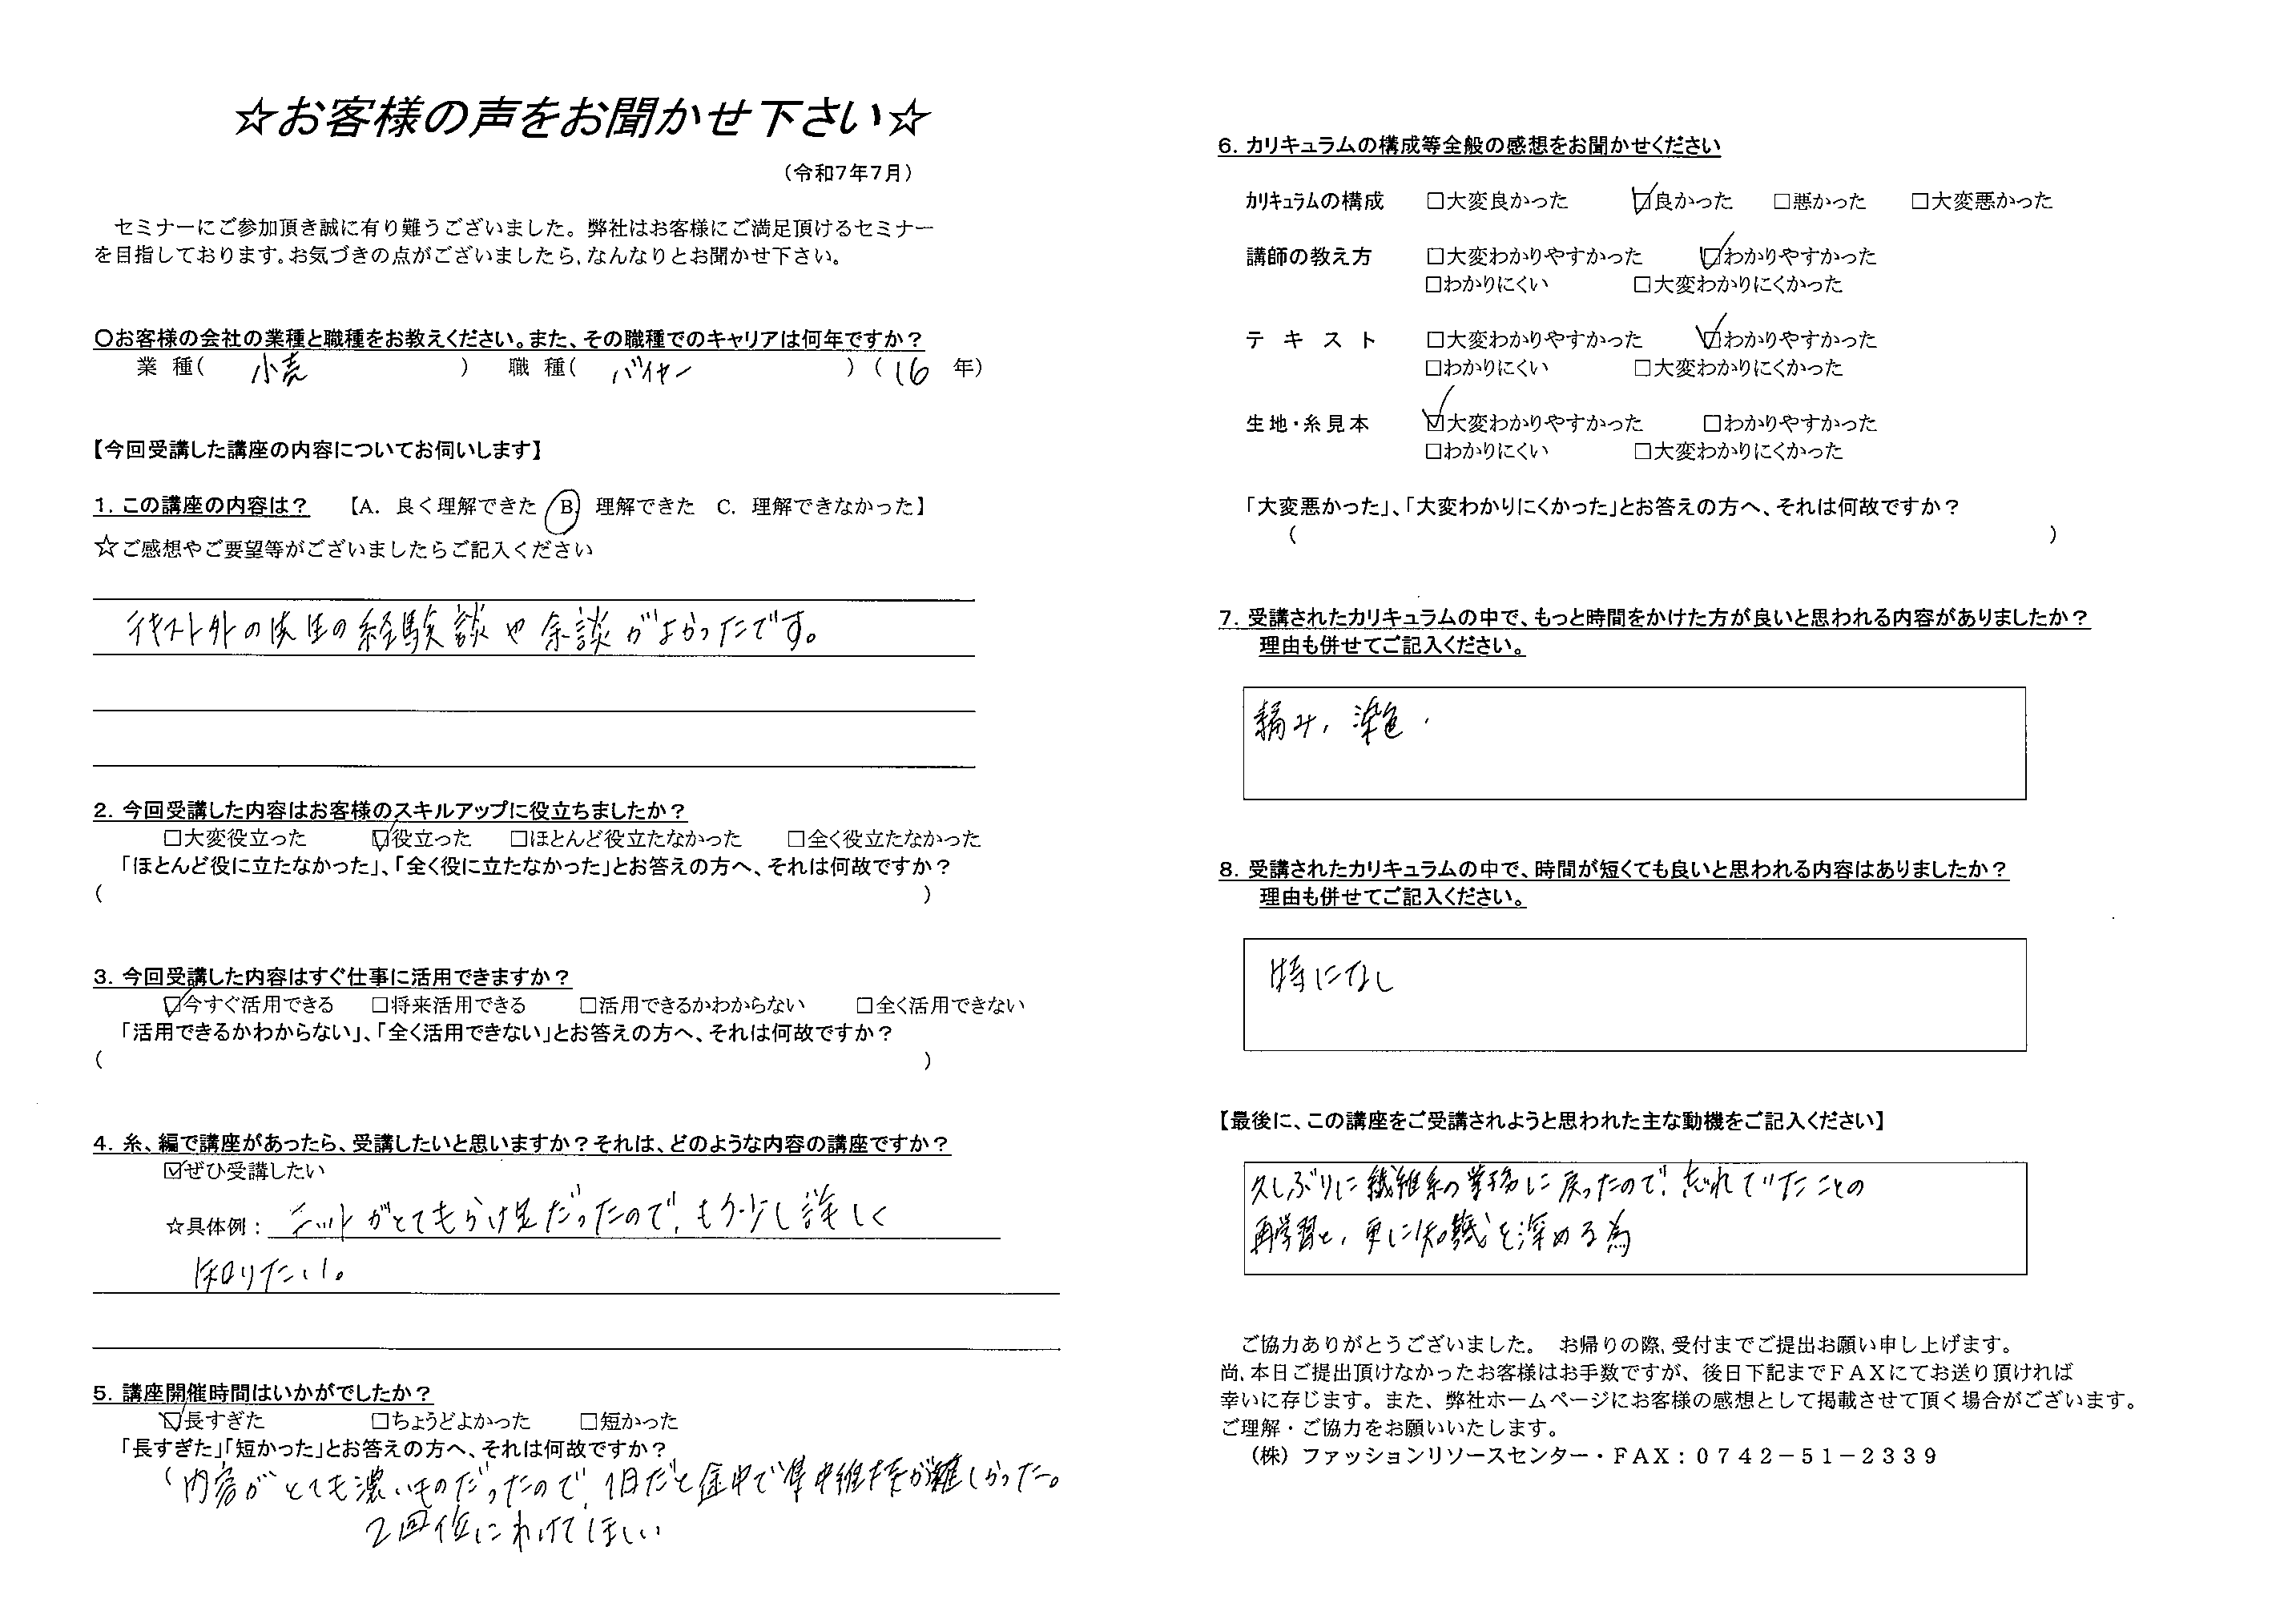 ☆お客様の声をお聞かせ下さい☆
（令和7年7月）
セミナーにご参加頂き誠に有り難うございました。弊社はお客様にご満足頂けるセミナー
を目指しております。お気づきの点がございましたら、なんなりとお聞かせ下さい。
〇お客様の会社の業種と職種をお教えください。また、その職種でのキャリアは何年ですか？
業 種（ 小売 ） 職 種（ バイヤー ）（ 16 年）
【今回受講した講座の内容についてお伺いします】
1．この講座の内容は？ 【A．良く理解できた B 理解できた C．理解できなかった】
☆ご感想やご要望等がございましたらご記入ください
テキスト外の先生の経験談や余談がよかったです。
2．今回受講した内容はお客様のスキルアップに役立ちましたか？
□大変役立った ☑役立った □ほとんど役立たなかった □全く役立たなかった
「ほとんど役に立たなかった」、「全く役に立たなかった」とお答えの方へ、それは何故ですか？
（ ）
3．今回受講した内容はすぐ仕事に活用できますか？
☑今すぐ活用できる □将来活用できる □活用できるかわからない □全く活用できない
「活用できるかわからない」、「全く活用できない」とお答えの方へ、それは何故ですか？
（ ）
4．糸、編で講座があったら、受講したいと思いますか？それは、どのような内容の講座ですか？
☑ぜひ受講したい
☆具体例： ニットがとてもかけ足だったので、もう少し詳しく
知りたい。
5．講座開催時間はいかがでしたか？
☑長すぎた □ちょうどよかった □短かった
「長すぎた」「短かった」とお答えの方へ、それは何故ですか？
（内容がとても濃いものだったので、1日だと途中で集中維持が難しかった。
2回位にわけてほしい
6．カリキュラムの構成等全般の感想をお聞かせください
カリキュラムの構成 □大変良かった ☑良かった □悪かった □大変悪かった
講師の教え方 □大変わかりやすかった ☑わかりやすかった
□わかりにくい □大変わかりにくかった
テ キ ス ト □大変わかりやすかった ☑わかりやすかった
□わかりにくい □大変わかりにくかった
生地・糸見本 ☑大変わかりやすかった □わかりやすかった
□わかりにくい □大変わかりにくかった
「大変悪かった」、「大変わかりにくかった」とお答えの方へ、それは何故ですか？
（ ）
7．受講されたカリキュラムの中で、もっと時間をかけた方が良いと思われる内容がありましたか？
理由も併せてご記入ください。
編み、染色．
8．受講されたカリキュラムの中で、時間が短くても良いと思われる内容はありましたか？
理由も併せてご記入ください。
特になし
【最後に、この講座をご受講されようと思われた主な動機をご記入ください】
久しぶりに繊維系の業務に戻ったので、忘れていたことの
再学習と、更に知識を深める為
ご協力ありがとうございました。 お帰りの際、受付までご提出お願い申し上げます。
尚、本日ご提出頂けなかったお客様はお手数ですが、後日下記までＦＡＸにてお送り頂ければ
幸いに存じます。また、弊社ホームページにお客様の感想として掲載させて頂く場合がございます。
ご理解・ご協力をお願いいたします。
（株）ファッションリソースセンター・ＦＡＸ：０７４２－５１－２３３９